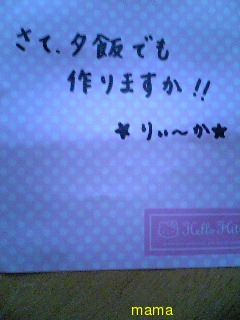 さて、夕飯でも
作りますか!!
★りぃ〜か★
Hello Kit
mama